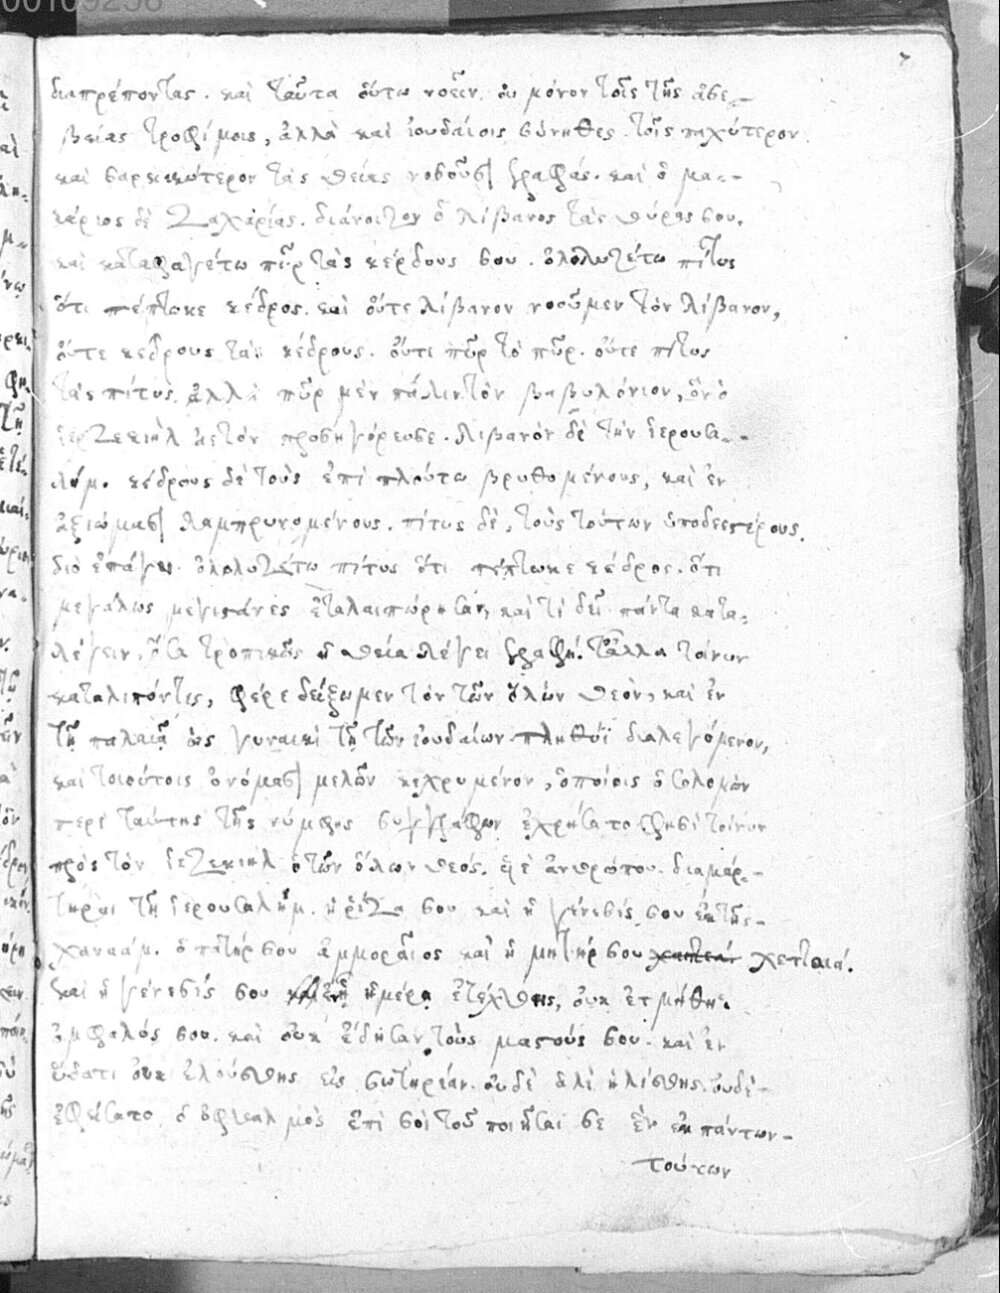 00109256
διαπρέποντας. καὶ ταῦτα οὕτω νοεῖν. οὐ μόνον τοῖς τῆς ἀσε-
βείας τροφίμοις, ἀλλὰ καὶ ἰουδαίοις σύνηθες. τοῖς παχύτερον
καὶ σαρκικώτερον τὰς θείας νοοῦσι γραφάς. καὶ ὁ μα-
κάριος δὲ Ζαχαρίας. διάνοιξον ὁ λίβανος τὰς θύρας σου.
καὶ καταφαγέτω πῦρ τὰς κέδρους σου. ὀλολυζέτω πίτυς
ὅτι πέπτωκε κέδρος. καὶ οὔτε λίβανον νοοῦμεν τὸν λίβανον,
οὔτε κέδρους τὰς κέδρους. οὔτε πῦρ τὸ πῦρ. οὔτε πίτυς
τὰς πίτυς. ἀλλὰ πῦρ μὲν πάλιν τὸν βαβυλώνιον, ὃν ὁ
ἰεζεκιὴλ ἀετὸν προσηγόρευσε. λίβανον δὲ τὴν ἱερουσα-
λήμ. κέδρους δὲ τοὺς ἐπὶ πλούτω βρυθομένους, καὶ ἐν
ἀξιώμασι λαμπρυνομένους. πίτυς δὲ, τοὺς τούτων ὑποδεεστέρους.
διὸ ἐπάγει ὀλολυζέτω πίτυς ὅτι πέπτωκε κέδρος. ὅτι
μεγάλως μεγιστάνες ἐταλαιπώρησαν, καὶ τί δεῖ πάντα κατα-
λέγειν, ὅσα τροπικῶς ἡ θεία λέγει γραφή. τἆλλα τοίνυν
καταλιπόντες, φέρε δείξωμεν τὸν τῶν ὅλων θεὸν, καὶ ἐν
τῆ παλαιᾶ ὡς γυναικὶ τῆ τῶν ἰουδαίων πληθύϊ διαλεγόμενον,
καὶ τοιούτοις ὀνόμασι μελῶν κεχρημένον, ὁποίοις ὁ σολομὼν
περὶ ταύτης τῆς νύμφης συγγράφων ἐχρήσατο. φησὶ τοίνυν
πρὸς τὸν ἰεζεκιὴλ ὁ τῶν ὅλων θεός. υἱὲ ἀνθρώπου. διαμάρ-
τηραι τῆ ἱερουσαλήμ. ἡ ῥίζα σου καὶ ἡ γένεσίς σου ἐκ τῆς
χαναάμ. ὁ πατήρ σου ἀμμοραῖος καὶ ἡ μητήρ σου χετταιά.
καὶ ἡ γένεσίς σου ἡμέρα ἐτέχθης, οὐκ ἐτμήθη
ὀμφαλός σου. καὶ οὐκ ἔδησαν τοὺς μαστούς σου. καὶ ἐν
ὕδατι οὐκ ἐλούσθης εἰς σωτηρίαν. οὐδὲ ἁλὶ ἡλίσθης. οὐδὲ
ἐφείσατο ὁ ὀφθαλμὸς ἐπὶ σοὶ τοῦ ποιῆσαι σε ἓν ἐκ πάντων
τούτων